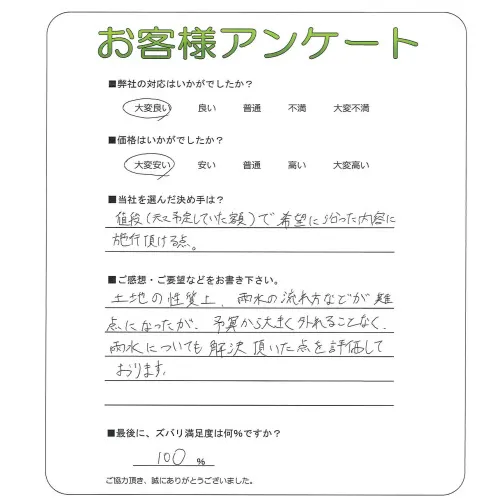 お客様アンケート
■弊社の対応はいかがでしたか？
大変良い 良い 普通 不満 大変不満
■価格はいかがでしたか？
大変安い 安い 普通 高い 大変高い
■当社を選んだ決め手は？
値段（予定していた額）で希望に沿った内容に
施行頂ける点。
■ご感想・ご要望などをお書き下さい。
土地の性質上、雨水の流れ方などが難
点になったが、予算から大きく外れることなく、
雨水についても解決頂いた点を評価して
おります。
■最後に、ズバリ満足度は何％ですか？
100 ％
ご協力頂き、誠にありがとうございました。